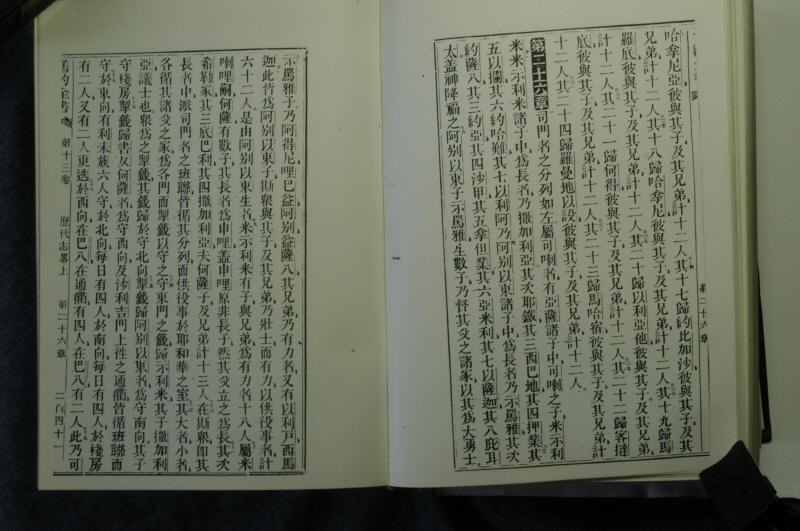 第二十六章
哈拿尼亞彼與其子及其兄弟計十二人其十七歸約比加沙彼與其子及其
兄弟計十二人其十八歸哈拿尼彼與其子及其兄弟計十二人其十九歸馬
羅底彼與其子及其兄弟計十二人其二十歸以利亞他彼與其子及其兄弟
計十二人其二十一歸何得彼與其子及其兄弟計十二人其二十二歸客撻
底彼與其子及其兄弟計十二人其二十三歸馬哈宿彼與其子及其兄弟計
十二人其二十四歸羅曼地以設彼與其子及其兄弟計十二人
第二十六篇司門者之分列如左屬可喇者有亞薩諸子中可喇之子米示利
米米示利米諸子中爲長者乃撒加利亞其次耶鐵其三西巴地其四押業其
五以攔其六約哈難其七以利阿乃阿别以東諸子中爲長者乃示罵雅其次
約薩八其三約亞其四沙甲其五拿但業其六亞米利其七以薩迦其八庇耳
太盖神降福之阿别以東子示罵雅生數子乃督其父之諸家以其爲大勇士
示罵雅子乃阿得尼哩巴益阿别益薩八其兄弟乃有力者又有以利戸西馬
迦此皆爲阿别以東子斯衆與其子及其兄弟乃壯士而有力以供役事者計
六十二人是由阿别以東生者米示利米有子與兄弟爲有力者十八人屬米
喇哩嗣何薩有數子其長者爲申哩盖申哩原非長子然其父立之爲長其次
希勒家其三底巴利其四撒加利亞夫何薩子及兄弟計十三人在斯衆即其
長者中派司門者之班聯皆循其分列而供役事於耶和華之室其大者小者
各循其諸父之家爲各門而掣籤以守之守東門之籤歸示利米其子撒加利
亞議士也衆爲之掣籤其籤歸於守北向掣籤歸阿别以東者爲守南向其子
守棧房掣籤歸書反何薩者爲守西向及沙利吉門上徃之通衢皆循班聯而
守於東向有利未族六人守於北向每日有四人於南向每日有四人於棧房
有二人又有二人更迭於西向在巴八在通衢有四人在巴八有二人此乃可
舊約全書 第十三卷 歷代志畧上 第二十六章 二百四十一